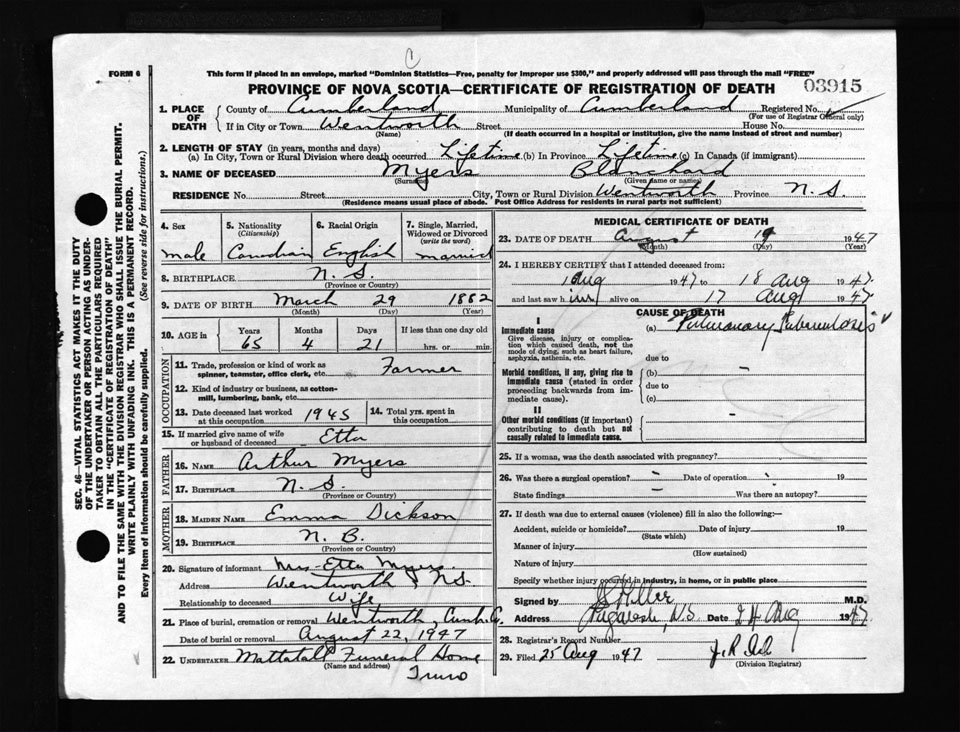 C
FORM 6
This form if placed in an envelope, marked "Dominion Statistics—Free, penalty for improper use $300," and properly addressed will pass through the mail "FREE"
PROVINCE OF NOVA SCOTIA—CERTIFICATE OF REGISTRATION OF DEATH
03915
1. PLACE OF DEATH
County of Cumberland Municipality of Cumberland Registered No.
(For use of Registrar General only)
If in City or Town Wentworth Street House No.
(Name) (If death occurred in a hospital or institution, give the name instead of street and number)
2. LENGTH OF STAY (in years, months and days)
(a) In City, Town or Rural Division where death occurred Lifetime (b) In Province Lifetime (c) In Canada (if immigrant)
3. NAME OF DECEASED Myers Blanchard
(Surname) (Given name or names)
RESIDENCE No. Street City, Town or Rural Division Wentworth Province N.S.
(Residence means usual place of abode. Post Office Address for residents in rural parts not sufficient)
4. Sex
male
5. Nationality
(Citizenship)
Canadian
6. Racial Origin
English
7. Single, Married, Widowed or Divorced
(write the word)
married
8. BIRTHPLACE N.S.
(Province or Country)
9. DATE OF BIRTH March 29 1882
(Month) (Day) (Year)
10. AGE in
Years Months Days If less than one day old
65 4 21 hrs. or min.
OCCUPATION
11. Trade, profession or kind of work as
spinner, teamster, office clerk, etc. Farmer
12. Kind of industry or business, as cotton-
mill, lumbering, bank, etc.
13. Date deceased last worked
at this occupation 1945
14. Total yrs. spent in
this occupation
15. If married give name of wife
or husband of deceased Etta
FATHER
16. NAME Arthur Myers
17. BIRTHPLACE N.S.
(Province or Country)
MOTHER
18. MAIDEN NAME Emma Dickson
19. BIRTHPLACE N.B.
(Province or Country)
20. Signature of informant Mrs. Etta Myers.
Address Wentworth, N.S.
Relationship to deceased Wife
21. Place of burial, cremation or removal Wentworth, Cumb. Co.
Date of burial or removal August 22, 1947
22. UNDERTAKER Mattatall Funeral Home
(Name and address)
Truro
MEDICAL CERTIFICATE OF DEATH
23. DATE OF DEATH August 19 1947
(Month) (Day) (Year)
24. I HEREBY CERTIFY that I attended deceased from:
1 Aug 1947 to 18 Aug 1947
and last saw him alive on 17 Aug 1947
CAUSE OF DEATH
I
Immediate cause
Give disease, injury or complica-
tion which caused death, not the
mode of dying, such as heart failure,
asphyxia, asthenia, etc.
(a) Pulmonary Tuberculosis
due to
Morbid conditions, if any, giving rise to
immediate cause (stated in order
proceeding backwards from im-
mediate cause).
(b) -
due to
(c)
II
Other morbid conditions (if important)
contributing to death but not
causally related to immediate cause.
-
25. If a woman, was the death associated with pregnancy?
26. Was there a surgical operation? - Date of operation - 19
State findings - Was there an autopsy?
27. If death was due to external causes (violence) fill in also the following:—
Accident, suicide or homicide? Date of injury 19
(State which)
Manner of injury
(How sustained)
Nature of injury
Specify whether injury occurred in industry, in home, or in public place
Signed by Miller M.D.
Address N.S. Date 24 Aug 1947
28. Registrar's Record Number
29. Filed 25 Aug 1947
(Division Registrar)
SEC. 46—VITAL STATISTICS ACT MAKES IT THE DUTY
OF THE UNDERTAKER OR PERSON ACTING AS UNDER-
TAKER TO OBTAIN ALL THE PARTICULARS REQUIRED
IN THE "CERTIFICATE OF REGISTRATION OF DEATH"
AND TO FILE THE SAME WITH THE DIVISION REGISTRAR WHO SHALL ISSUE THE BURIAL PERMIT.
WRITE PLAINLY WITH UNFADING INK. THIS IS A PERMANENT RECORD.
Every item of information should be carefully supplied. (See reverse side for instructions.)